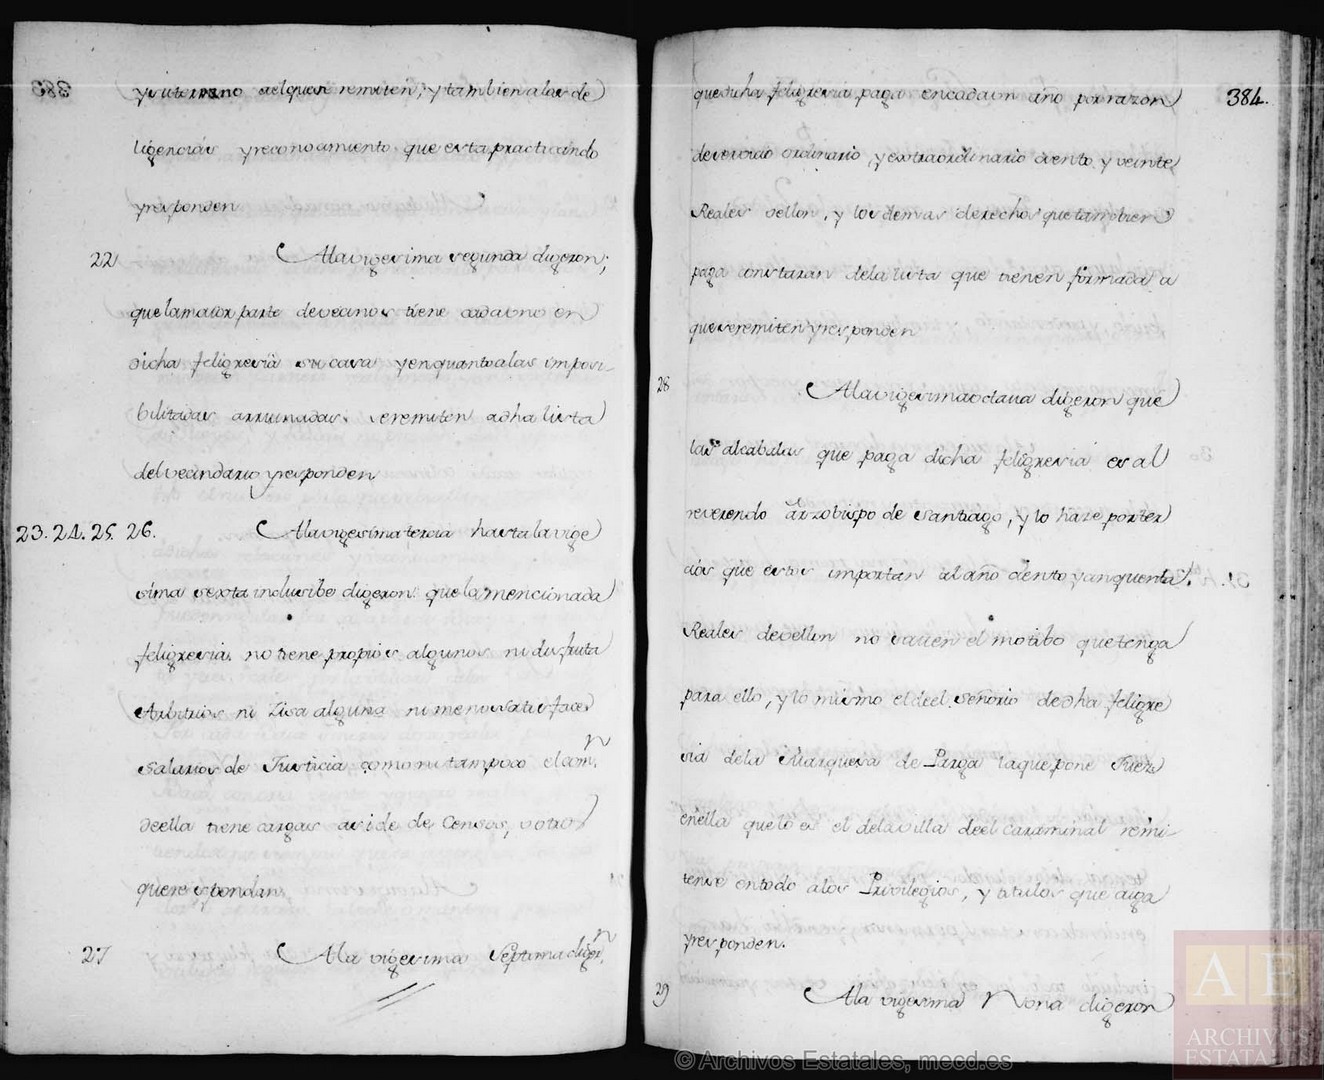 y su terreno a el que se remiten, y tambien a las de
ligencias y reconocimiento que esta practicando
y responden
22 A la vigesima segunda digeron;
que la maior parte de vecinos tiene cada uno en
dicha feligresia su casa y en quanto a las imposi-
bilitadas arruinadas. se remiten a dha lista
del vecindario y responden
23. 24. 25. 26. A la vigesima tercia hasta la vige
sima sexta inclusibe digeron que la mencionada
feligresia no tiene propios algunos ni disfruta
Arbitrios ni Zisa alguna ni menos satisface
salarios de Justicia como ni tampoco el comn.
de ella tiene cargas de Censos, u otro
que respondan.
27 A la vigesima septima digern.
384.
que dicha feligresia paga en cada un año por razon
de servicio ordinario, y extraordinario ciento y veinte
Reales vellon, y los demas derechos que tambien
paga constaran de la lista que tienen formada a
que se remiten y responden
28 A la vigesima octava digeron que
las alcabalas que paga dicha feligresia es al
reverendo Arzobispo de Santiago, y lo haze por ter
cios que estos importan al año ciento y cinquenta
Reales de vellon no saven el motibo que tenga
para ello, y lo mismo el de el Señorio de dha feligre
sia de la Marquesa de Parga la que pone Juez
en ella que lo es el de la villa de el caramiñal remi-
tense en todo a los Privilegios, y titulos que aiga
y responden.
29 A la vigesima Nona digeron
© Archivos Estatales, mecd.es
AE
ARCHIVOS
ESTATALES